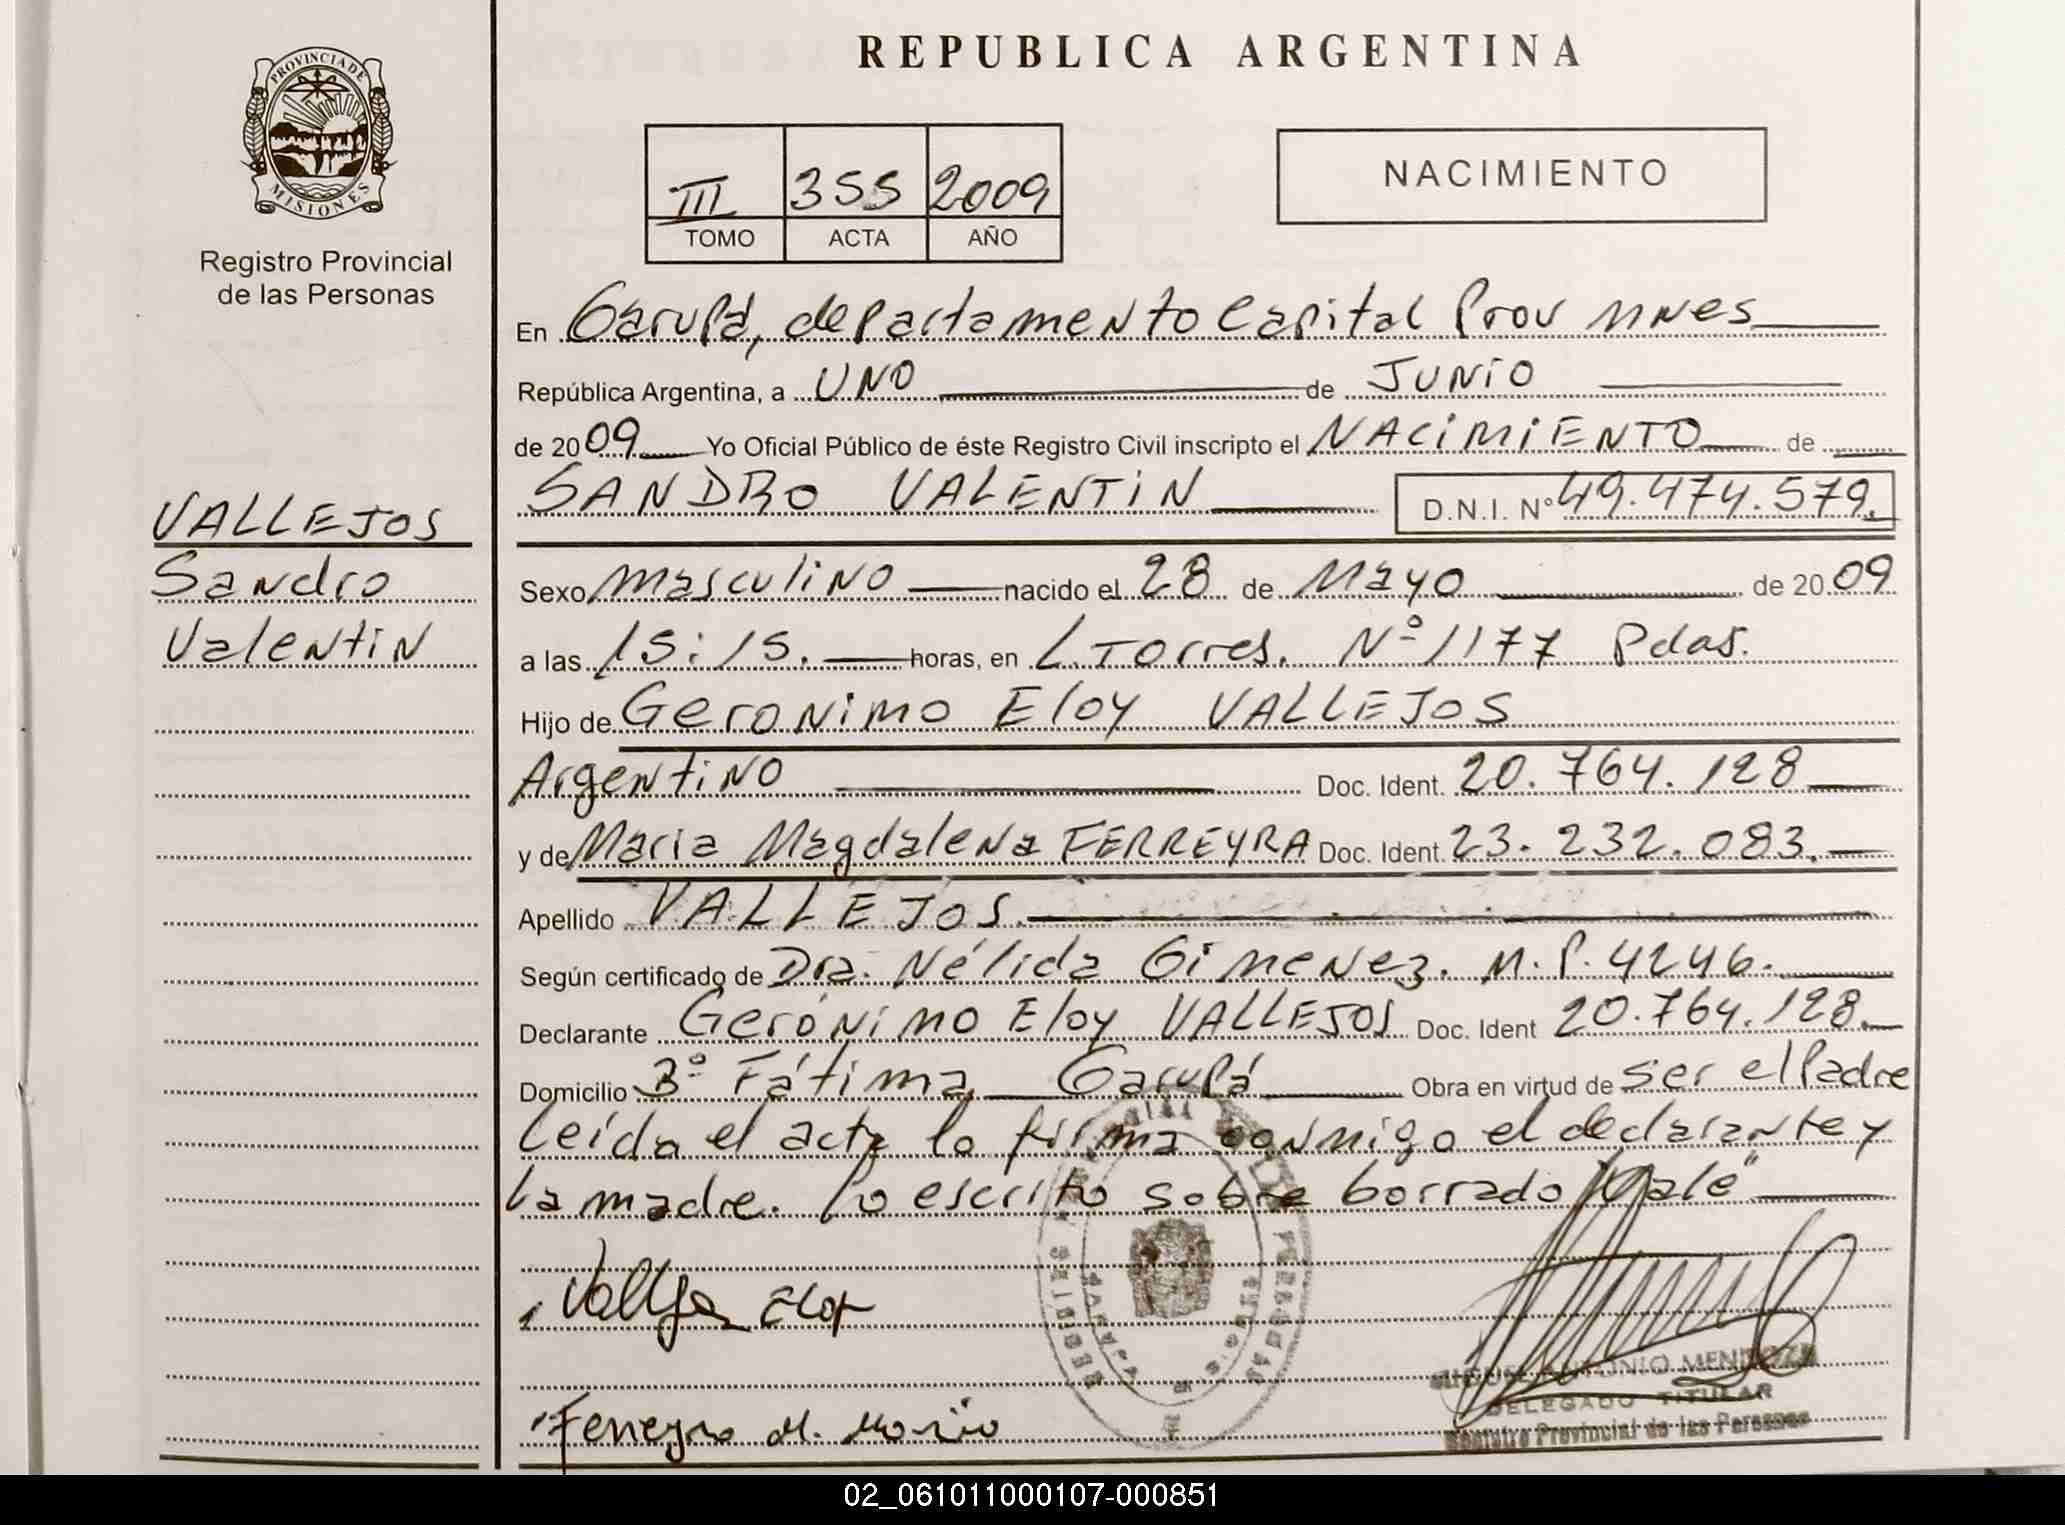 REPUBLICA ARGENTINA
PROVINCIA DE
MISIONES
Registro Provincial
de las Personas
III 355 2009
TOMO ACTA AÑO
NACIMIENTO
En Garupá, departamento Capital Prov Mnes
República Argentina, a UNO de JUNIO
de 2009 Yo Oficial Público de éste Registro Civil inscripto el NACIMIENTO de
SANDRO VALENTIN D.N.I. Nº 49.474.579.
VALLEJOS
Sandro
Valentin
Sexo masculino nacido el 28 de Mayo de 2009
a las 15:15. horas, en L. Torres. Nº 1177 Pdas.
Hijo de Geronimo Eloy VALLEJOS
Argentino Doc. Ident. 20.764.128
y de Maria Magdalena FERREYRA Doc. Ident. 23.232.083.
Apellido VALLEJOS.
Según certificado de Dra. Nélida Gimenez. M.P. 4246.
Declarante Gerónimo Eloy VALLEJOS Doc. Ident 20.764.128.
Domicilio Bº Fátima Garupá Obra en virtud de ser el Padre
Leída el acta la firma conmigo el declarante y
la madre. Lo escrito sobre borrado "Vale"
Eloy
Ferreyra M. Maria
MIGUEL ANTONIO MENDOZA
DELEGADO TITULAR
Registro Provincial de las Personas
02_061011000107-000851